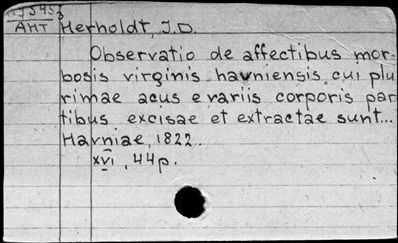 AHT Herholdt, J.D.
Observatio de affectibus mor-
bosis virginis havniensis cui plu
rimae acus e variis corporis par
tibus excisae et extractae sunt...
Havniae, 1822.
xvi, 44p.